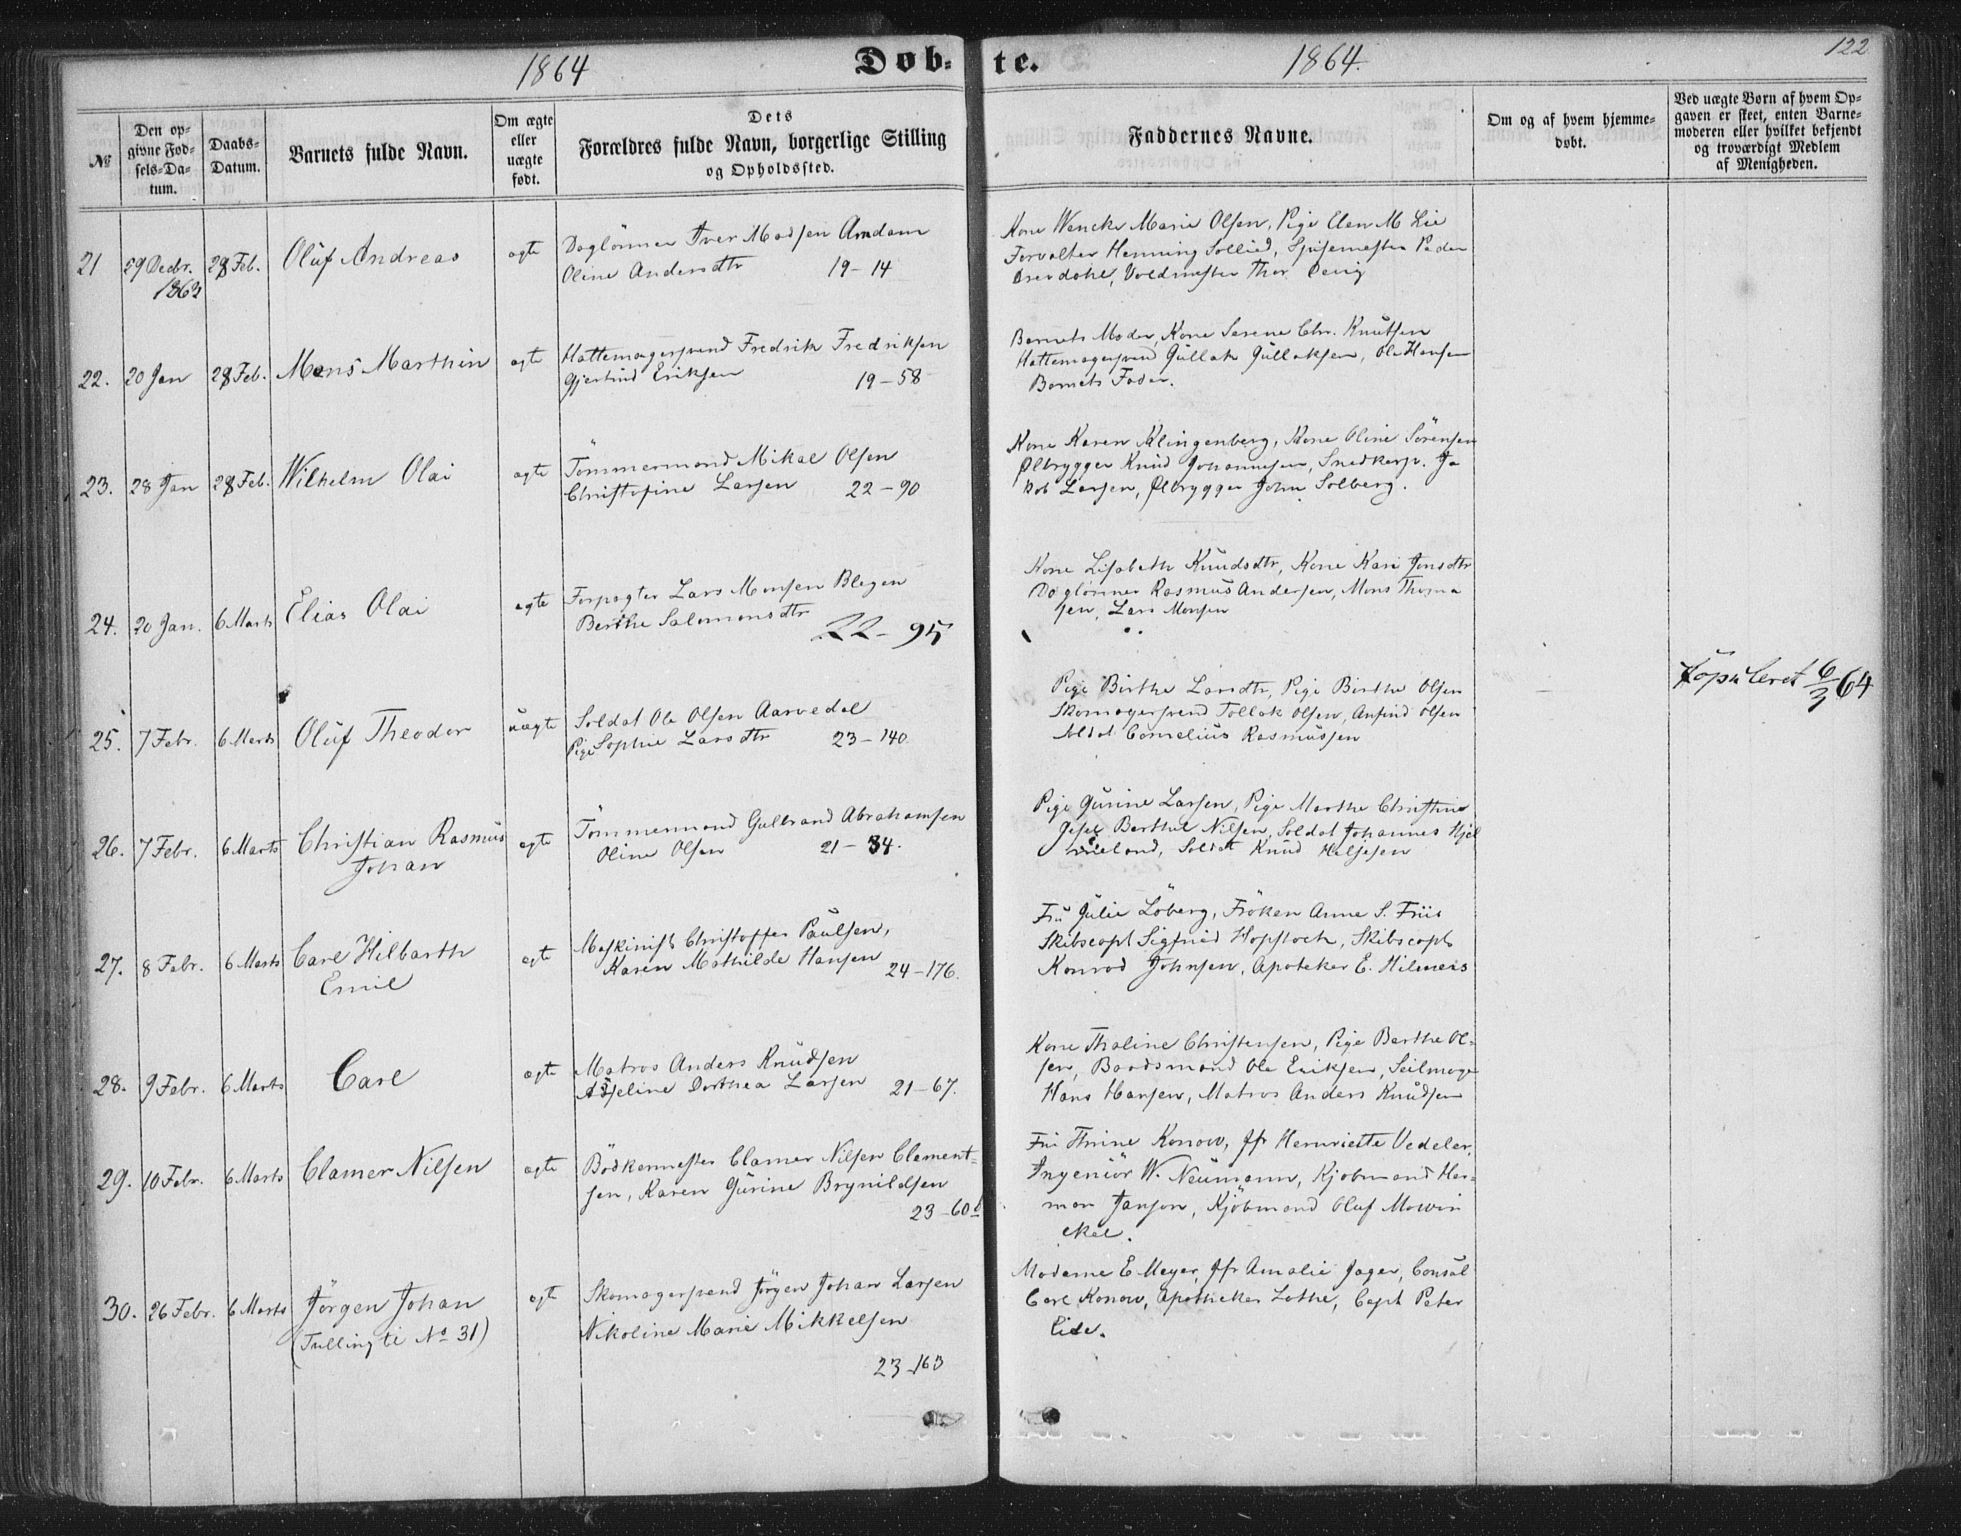 1864 Døb-
te. 1864. 122
No
Den opgivne Fødsels-Datum.
Daabs-Datum.
Barnets fulde Navn.
Om ægte eller uægte født.
Dets Forældres fulde Navn, borgerlige Stilling og Opholdssted.
Faddernes Navne.
Om og af hvem hjemmedøbt.
Ved uægte Børn af hvem Opgaven er skeet, enten Barnemoderen eller hvilket bekjendt og troværdigt Medlem af Menigheden.
21 29 Decbr. 28 Feb. Oluf Andreas ægte Daglönner Iver Madsen Amdam
1863 Oline Andersdtr 19-14
Kone Wencke Marie Olsen, Pige Elen M Lie
Forvalter Henning Sollied, Spisemester Peder
Voldmester Thor
22. 20 Jan 28 Feb. Mons Marthin ægte Hattemagersvend Fredrik Fredriksen
Gjertrud Eriksen 19-58
Barnets Moder, Kone Serene Chr. Knutsen
Hattemagersvend Gullak Gullaksen, Ole Hansen
Barnets Fader.
23. 28 Jan 28 Feb. Wilhelm Olai ægte Tömmermand Mikal Olsen
Christofine Larsen 22-90
Kone Karen Klingenberg, Kone Oline Sörensen
Ølbrygger Knud Johannesen, Snedkersv. Ja
kob Larsen, Ølbrygger John Solberg.
24. 20 Jan. 6 Marts Elias Olai ægte Forpagter Lars Monsen Blegen
Berthe Salomonsdtr 22-95
Kone Lisabeth Knudsdtr, Kone Kari Jonsdtr
Daglönner Rasmus Andersen, Mons Thoma
sen, Lars Monsen
25. 7 Febr. 6 Marts Oluf Theodor uægte Soldat Ole Olsen Aarvedal
Pige Sophie Larsdtr 23-140
Pige Birthe Larsdtr, Pige Birthe Olsen
Skomagersvend Tollak Olsen, Anfind Olsen
Soldat Cornelius Rasmussen
Copuleret 6/3 64
26. 7 Febr. 6 Marts Christian Rasmus ægte Tömmermand Gulbrand Abrahamsen
Johan Oline Olsen 21-34.
Pige Gurine Larsen, Pige Marthe Christine
Berthel Nilsen, Soldat Johannes Hjel
meland, Soldat Knud Helgesen
27. 8 Febr. 6 Marts Carl Hilbarth ægte Maskinist Christoffer Paulsen,
Emil Karen Mathilde Hansen 24-176.
Fru Julie Löberg, Fröken Anne S. Friis
Skibscapt Sigfried Hopstock, Skibscapt
Konrad Johnsen, Apoteker E. Hilmers
28. 9 Febr. 6 Marts Carl ægte Matros Anders Knudsen
Adseline Dorthea Larsen 21-67.
Kone Thaline Christensen, Pige Berthe Ol-
sen, Baadsmand Ole Eriksen, Seilmager
Hans Hansen, Matros Anders Knudsen
29. 10 Febr. 6 Marts Clamer Nilsen ægte Bödkermester Clamer Nilsen Clement-
sen, Karen Gurine Brynildsen
23-60b
Fru Thrine Konow, Jfr Henriette Vedeler,
Ingeniör W. Neumann, Kjöbmand Her-
man Janson, Kjöbmand Oluf Mowin
ckel.
30. 26 Febr. 6 Marts Jörgen Johan ægte Skomagersvend Jörgen Johan Larsen
(Tvilling til No 31) Nikoline Marie Mikkelsen
23-163
Madame E Meyer, Jfr Amalie Jager, Consul
Carl Konow, Apotheker Lothe, Capt Peter
Eide.